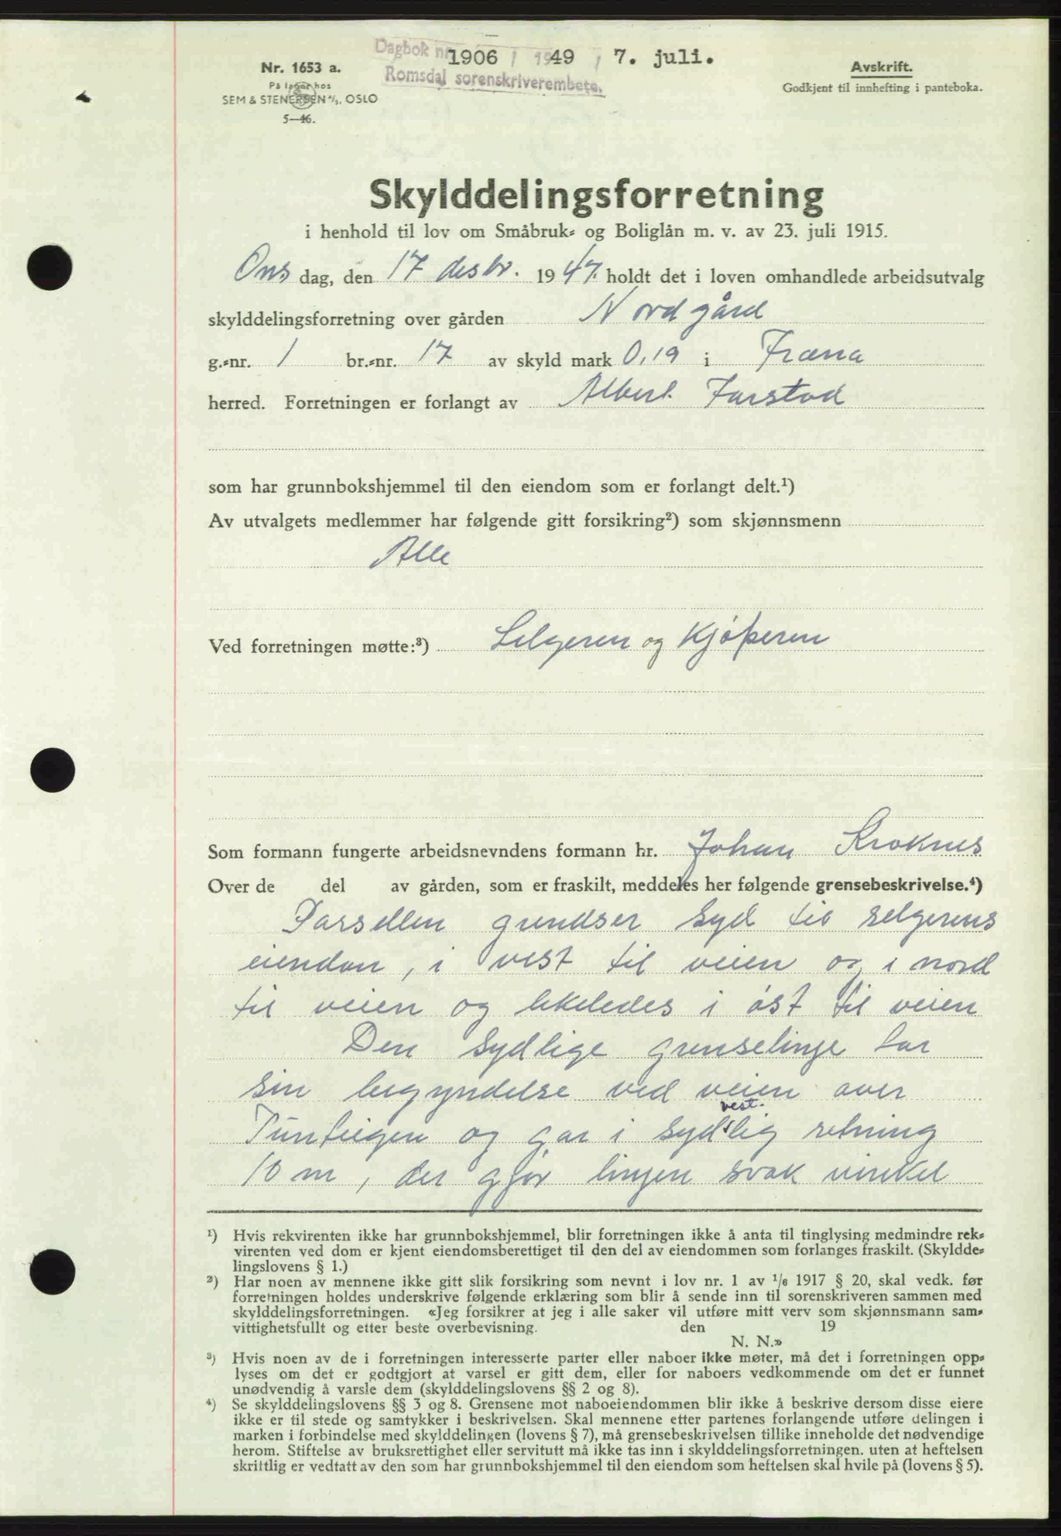 Dagbok nr. 1906 / 1949 / 7. juli.
Romsdal sorenskriverembete.
Nr. 1653 a.
På lager hos
SEM & STENERSEN A/S, OSLO
5—46.
Avskrift.
Godkjent til innhefting i panteboka.
Skylddelingsforretning
i henhold til lov om Småbruk- og Boliglån m. v. av 23. juli 1915.
Ons dag, den 17 desbr. 1947. holdt det i loven omhandlede arbeidsutvalg
skylddelingsforretning over gården Nordgård
g.-nr. 1 br.-nr. 17 av skyld mark 0,19 i Fræna
herred. Forretningen er forlangt av Albert Farstad
som har grunnbokshjemmel til den eiendom som er forlangt delt.¹)
Av utvalgets medlemmer har følgende gitt forsikring²) som skjønnsmenn
Alle
Ved forretningen møtte:³) Selgeren og Kjøperen
Som formann fungerte arbeidsnevndens formann hr. Johan Kroknes
Over de del av gården, som er fraskilt, meddeles her følgende grensebeskrivelse.⁴)
Parsellen grendser syd til selgerens
eiendom, i vest til veien og i nord
til veien og likeledes i øst til veien
Den sydlige grenselinje har
sin begyndelse ved veien over
vest.
Tunteigen og går i sydlig retning
10 m, der gjør linjen svak vinkel
¹) Hvis rekvirenten ikke har grunnbokshjemmel, blir forretningen ikke å anta til tinglysing medmindre rek-
virenten ved dom er kjent eiendomsberettiget til den del av eiendommen som forlanges fraskilt. (Skyldde-
lingslovens § 1.)
²) Har noen av mennene ikke gitt slik forsikring som nevnt i lov nr. 1 av 1/6 1917 § 20, skal vedk. før
forretningen holdes underskrive følgende erklæring som blir å sende inn til sorenskriveren sammen med
skylddelingsforretningen. «Jeg forsikrer at jeg i alle saker vil utføre mitt verv som skjønnsmann sam-
vittighetsfullt og etter beste overbevisning. den 19
N. N.»
³) Hvis noen av de i forretningen interesserte parter eller naboer ikke møter, må det i forretningen opp-
lyses om det er godtgjort at varsel er gitt dem, eller for naboers vedkommende om det er funnet
unødvendig å varsle dem (skylddelingslovens §§ 2 og 8).
⁴) Se skylddelingslovens §§ 3 og 8. Grensene mot naboeiendommen blir ikke å beskrive dersom disse eiere
ikke er til stede og samtykker i beskrivelsen. Skal mennene etter partenes forlangende utføre delingen i
marken i forbindelse med skylddelingen (lovens § 7), må grensebeskrivelsen tillike inneholde det nødvendige
herom. Stiftelse av bruksrettighet eller servitutt må ikke tas inn i skylddelingsforretningen. uten at heftelsen
skriftlig er vedtatt av den som har grunnbokshjemmel til den eiendom som heftelsen skal hvile på (lovens § 5).